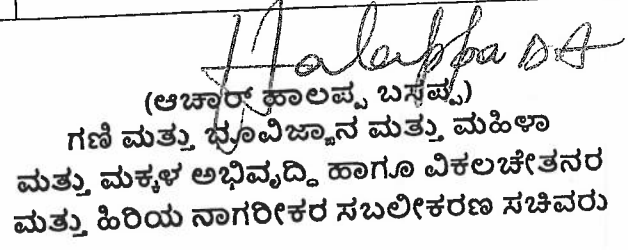 Halappa D A
(ಆಚಾರ್ ಹಾಲಪ್ಪ ಬಸಪ್ಪ)
ಗಣಿ ಮತ್ತು ಭೂವಿಜ್ಞಾನ ಮತ್ತು ಮಹಿಳಾ
ಮತ್ತು ಮಕ್ಕಳ ಅಭಿವೃದ್ದಿ ಹಾಗೂ ವಿಕಲಚೇತನರ
ಮತ್ತು ಹಿರಿಯ ನಾಗರೀಕರ ಸಬಲೀಕರಣ ಸಚಿವರು